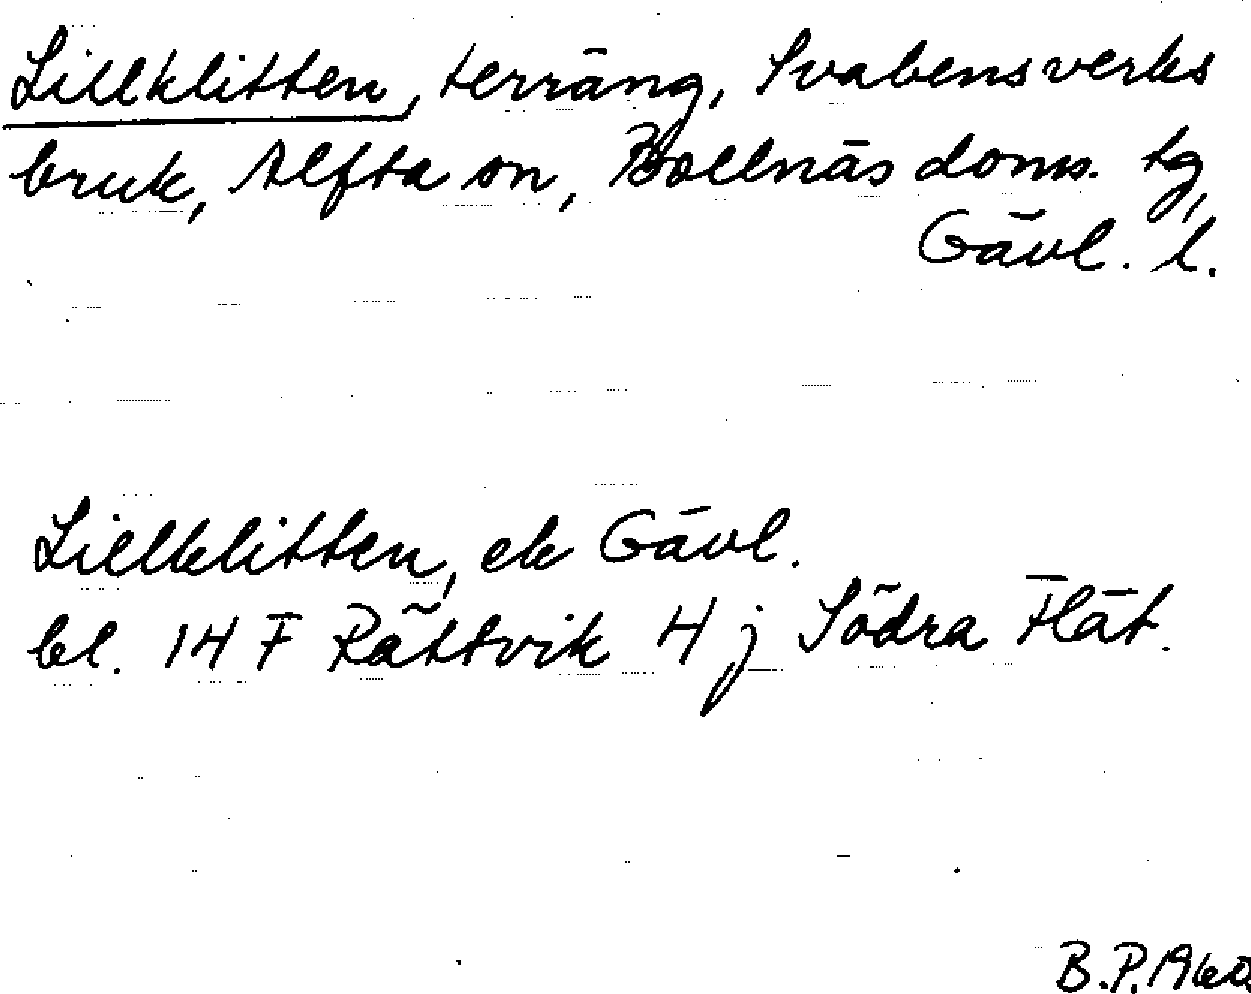 Lillklitten, terräng, Svabensverks
bruk, Alfta sn, Bollnäs doms. tg,
Gävl. l.
Lillklitten, ek Gävl.
bl. 14 F Rättvik 4 j Södra Flät.
B.P. 1960